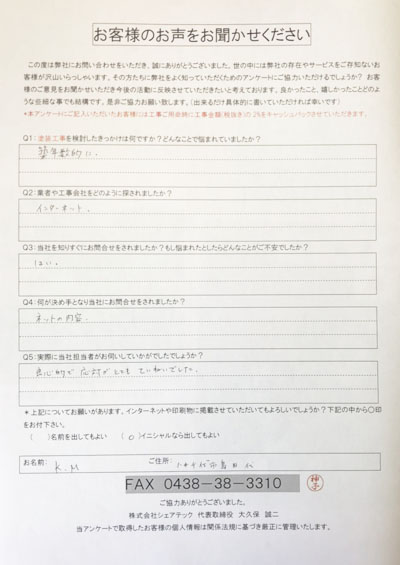 お客様のお声をお聞かせください
この度は弊社にお問い合わせをいただき、誠にありがとうございました。世の中には弊社の存在やサービスをご存知ないお
客様が沢山いらっしゃいます。その方たちに弊社をよく知っていただくためのアンケートにご協力いただけるでしょうか？ お客
様のご意見をお聞かせいただき今後の活動に反映させていただきたいと考えております。良かったこと、嬉しかったことどのよ
うな些細な事でも結構です。是非ご協力お願い致します。（出来るだけ具体的に書いていただければ幸いです）
*本アンケートにご記入いただいたお客様には工事ご用命時に工事金額（税抜き）の2%をキャッシュバックさせていただきます。
Q1：塗装工事を検討したきっかけは何ですか？どんなことで悩まれていましたか？
築年数的に.
Q2：業者や工事会社をどのように探されましたか？
インターネット.
Q3：当社を知りすぐにお問合せをされましたか？もし悩まれたとしたらどんなことがご不安でしたか？
はい.
Q4：何が決め手となり当社にお問合せをされましたか？
ネットの内容.
Q5：実際に当社担当者がお伺いしていかがでしたでしょうか？
良心的で 応対がとても ていねいでした.
*上記についてお願いがあります。インターネットや印刷物に掲載させていただいてもよろしいでしょうか？下記の中から〇印
をお付下さい。
（　）名前を出してもよい （o）イニシャルなら出してもよい
お名前： K.M ご住所：
FAX 0438-38-3310
ご協力ありがとうございました。
株式会社シェアテック 代表取締役 大久保 誠二
当アンケートで取得したお客様の個人情報は関係法規に基づき厳正に管理いたします。